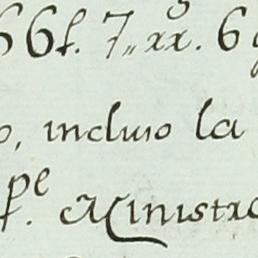 66f. 7,, xx. 6
incluso la
pe
f. Ministro